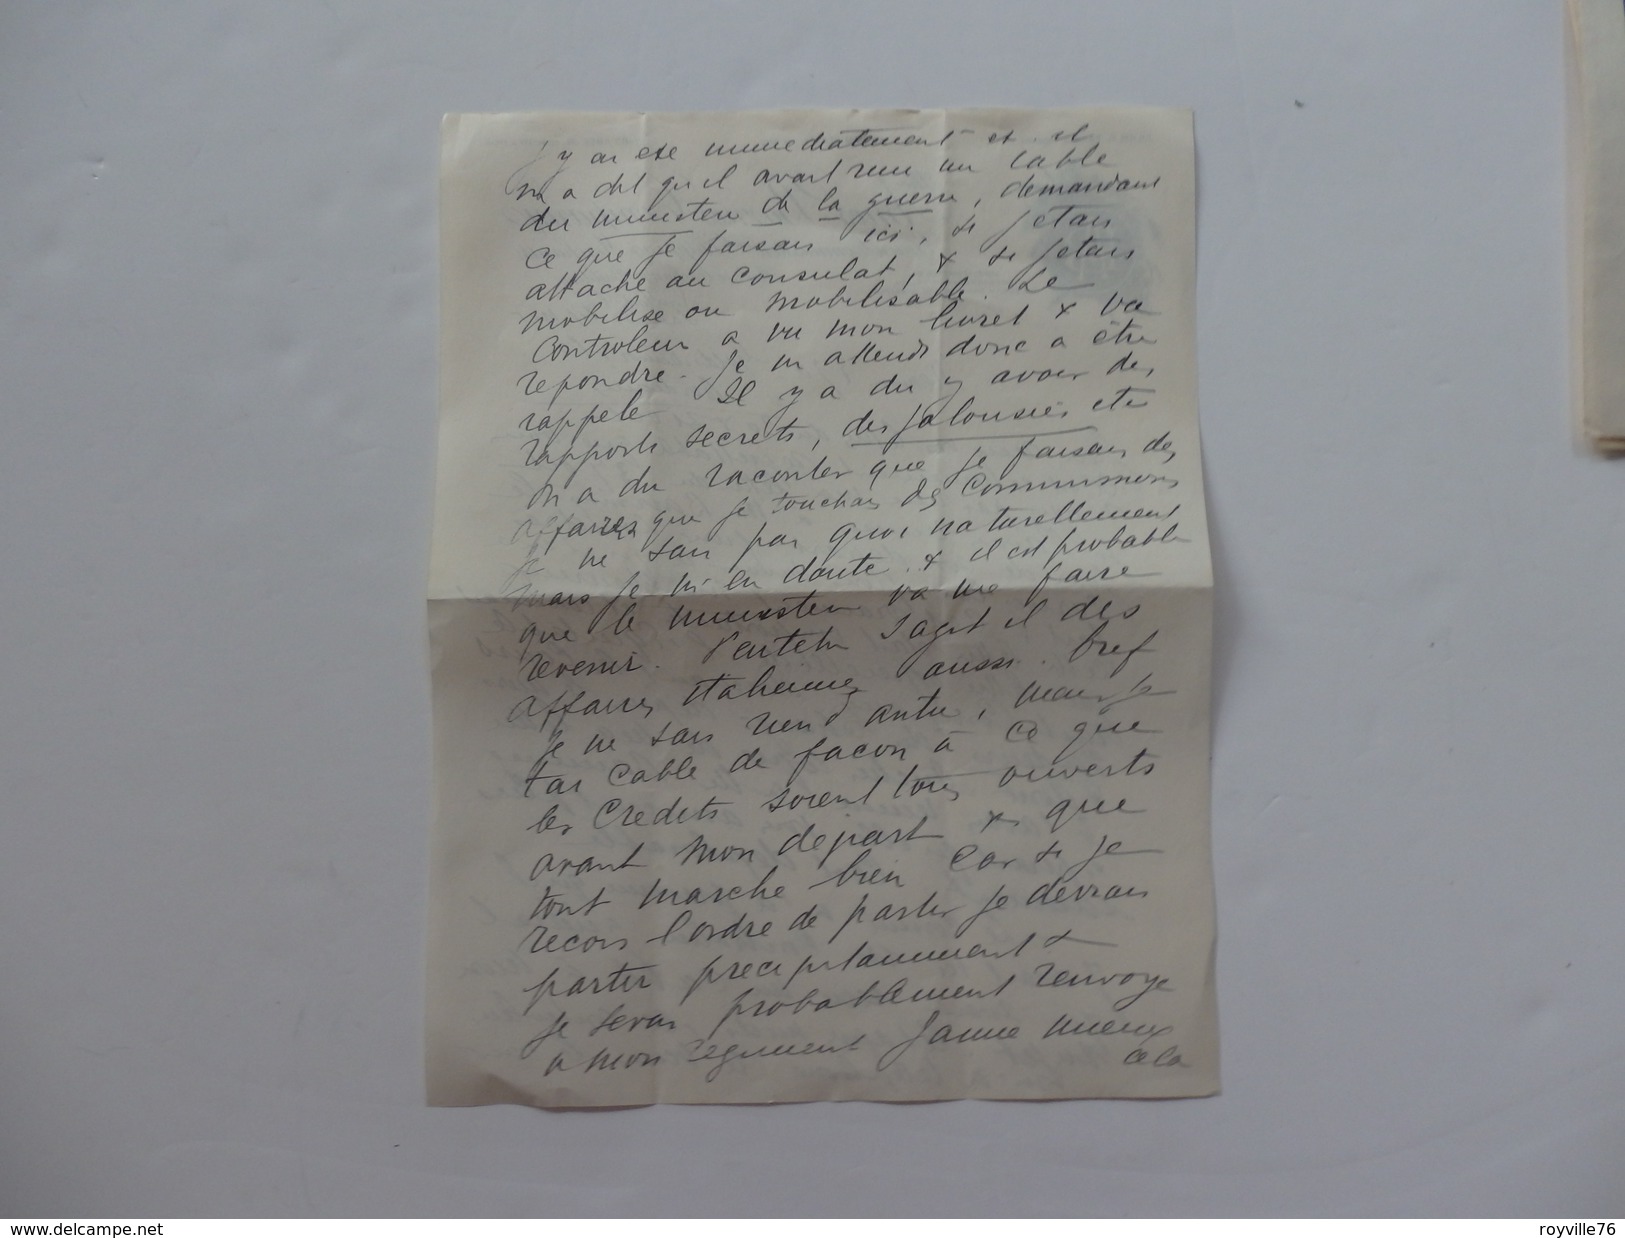 J'y ai été immediatement et il
m'a dit qu'il avait recu un cable
du ministere de la guerre, demandant
ce que je faisais ici, si j'etais
attache au consulat, & si j'etais
mobilise ou mobilisable. Le
controleur a vu mon livret & va
repondre. Je m'attends donc a être
rappele Il y a du y avoir des
rapports secrets, des jalousies etc
On a du raconter que je faisais des
affaires que je touchais des commissions
je ne sais pas quoi naturellement
mais je m'en doute & il est probable
que le ministere va me faire
revenir. Peutetre s'agit il des
affaires italiennes aussi. bref
je ne sais rien d'autre, mais je
t'ai cable de façon à ce que
les credits soient tous ouverts
avant mon depart & que
tout marche bien Car si je
recois l'ordre de partir je devrais
partir precipitamment &
je serai probablement renvoye
a mon regiment J'aime mieux
cela
delcampe.net
royville76